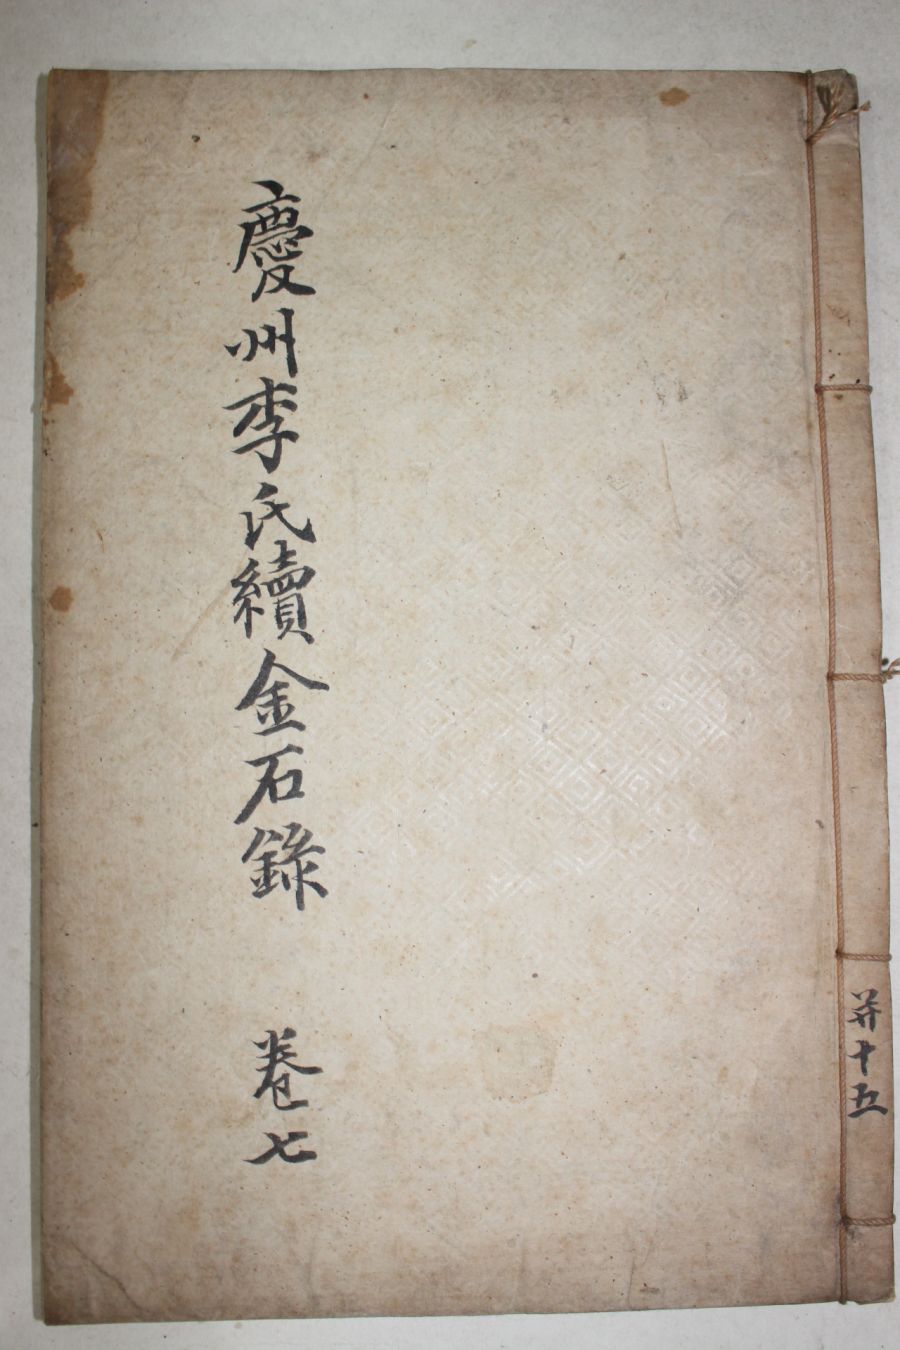 慶州李氏續金石錄 卷七
并十五